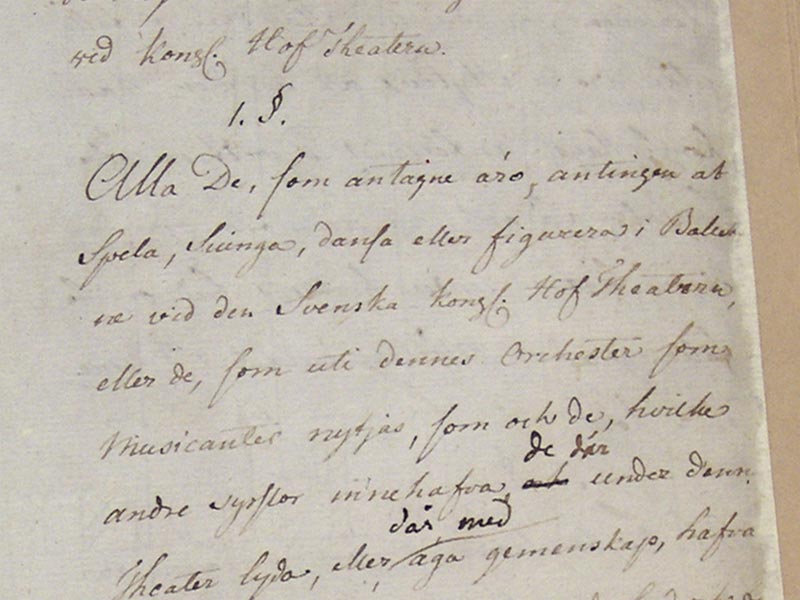 vid kongl. Hof Theatern.
1. §.
Alla De, som antagne äro, antingen at
Spela, Siunga, dansa eller figurera i Balett
ne vid den Svenska kongl. Hof Theatern,
eller de, som uti dennes Orchester som
Musicanter nytjas, som och de, hvilke
de där
andre sysslor innehafva, at under denn
där med
Theater lyda, eller äga gemenskap, hafva